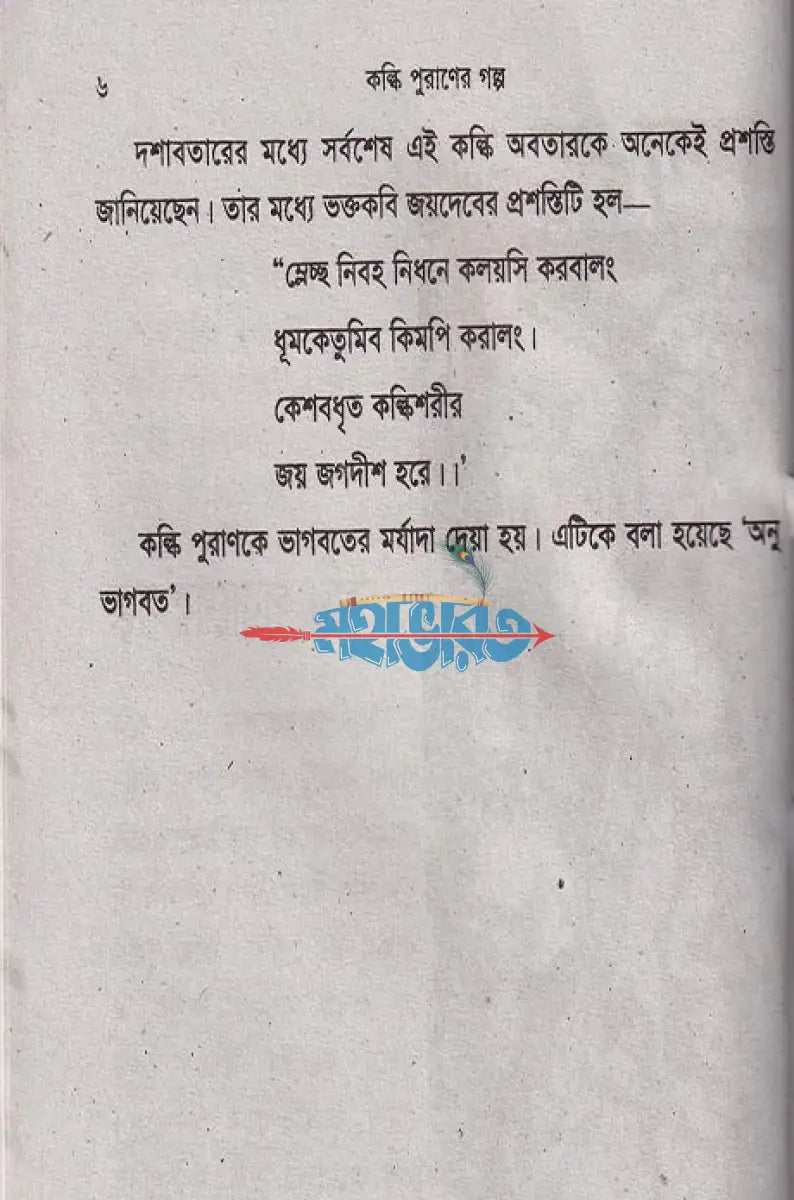 ৬
কল্কি পুরাণের গল্প
দশাবতারের মধ্যে সর্বশেষ এই কল্কি অবতারকে অনেকেই প্রশস্তি
জানিয়েছেন। তার মধ্যে ভক্তকবি জয়দেবের প্রশস্তিটি হল—
“ম্লেচ্ছ নিবহ নিধনে কলয়সি করবালং
ধূমকেতুমিব কিমপি করালং।
কেশবধৃত কল্কিশরীর
জয় জগদীশ হরে।।’
কল্কি পুরাণকে ভাগবতের মর্যাদা দেয়া হয়। এটিকে বলা হয়েছে ‘অনু
ভাগবত’।
মহাভারত